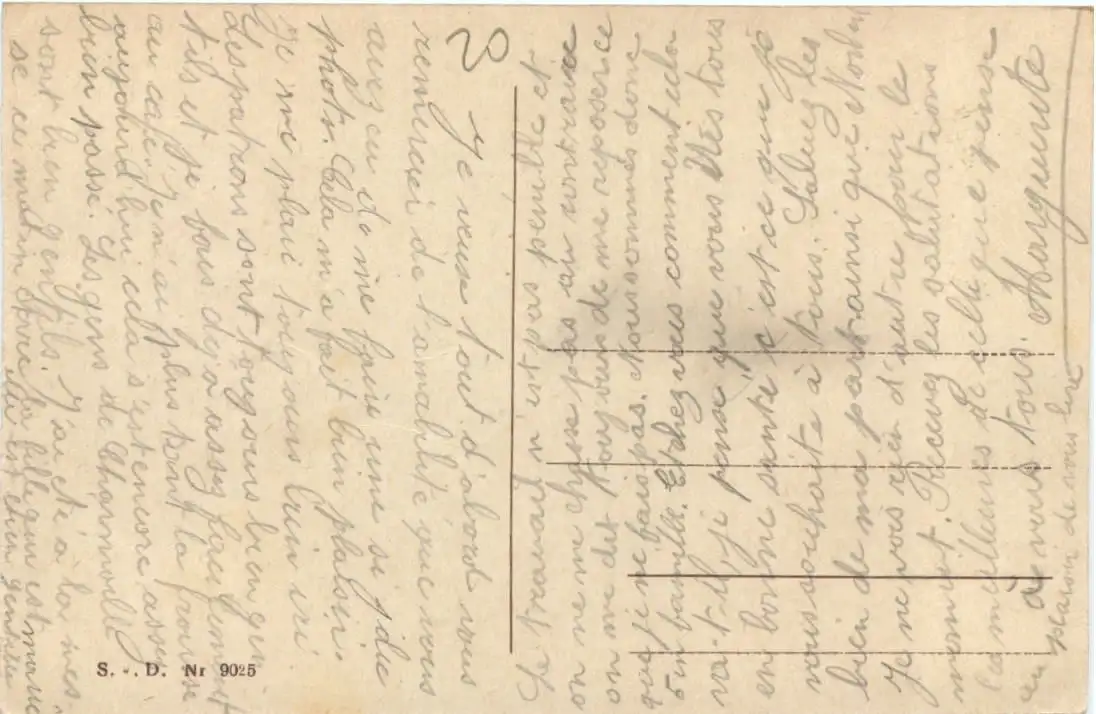 2
Je veux tout d'abord vous
remercier de l'amabilité que vous
avez eu de me faire une si jolie
photo. Cela m'a fait bien plaisir.
Je me plai toujours bien ici.
Les patrons sont toujours bien gen
tils et je fais déjà assez facilement
au café. Je n'ai plus tant la frousse
aujourd'hui cela s'est encore assez
bien passé. Les gens de Charmoille
sont bien gentils. J'ai été à la mes-
se ce matin avec la fille qui est
elle est bien gentille
Le travail n'est pas pénible et
on ne me chasse pas au contraire
on me dit toujours de me reposer ce
que je ne fais pas. Nous sommes donc
en famille. Et chez vous comment cela
va-t-il, je pense que vous êtes tous
en bonne santé c'est ce que je
vous souhaite à tous. Saluez les
bien de ma part ainsi que
Je ne vois rien d'autre pour le
moment. Recevez les salutations
les meilleures de celle qui pense
à vous tous. Marguerite
au plaisir de vous lire
S. - . D. Nr 9025